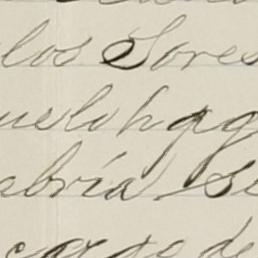 los Sores
uelo hag
abría se
cargo de